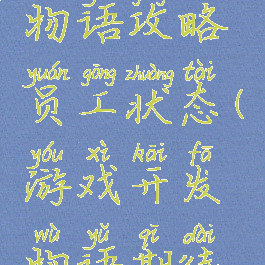 物语攻略
yuán gōng zhuàng tài
员工状态(
yóu xì kāi fā
游戏开发
wù yǔ qī dài
物语期待